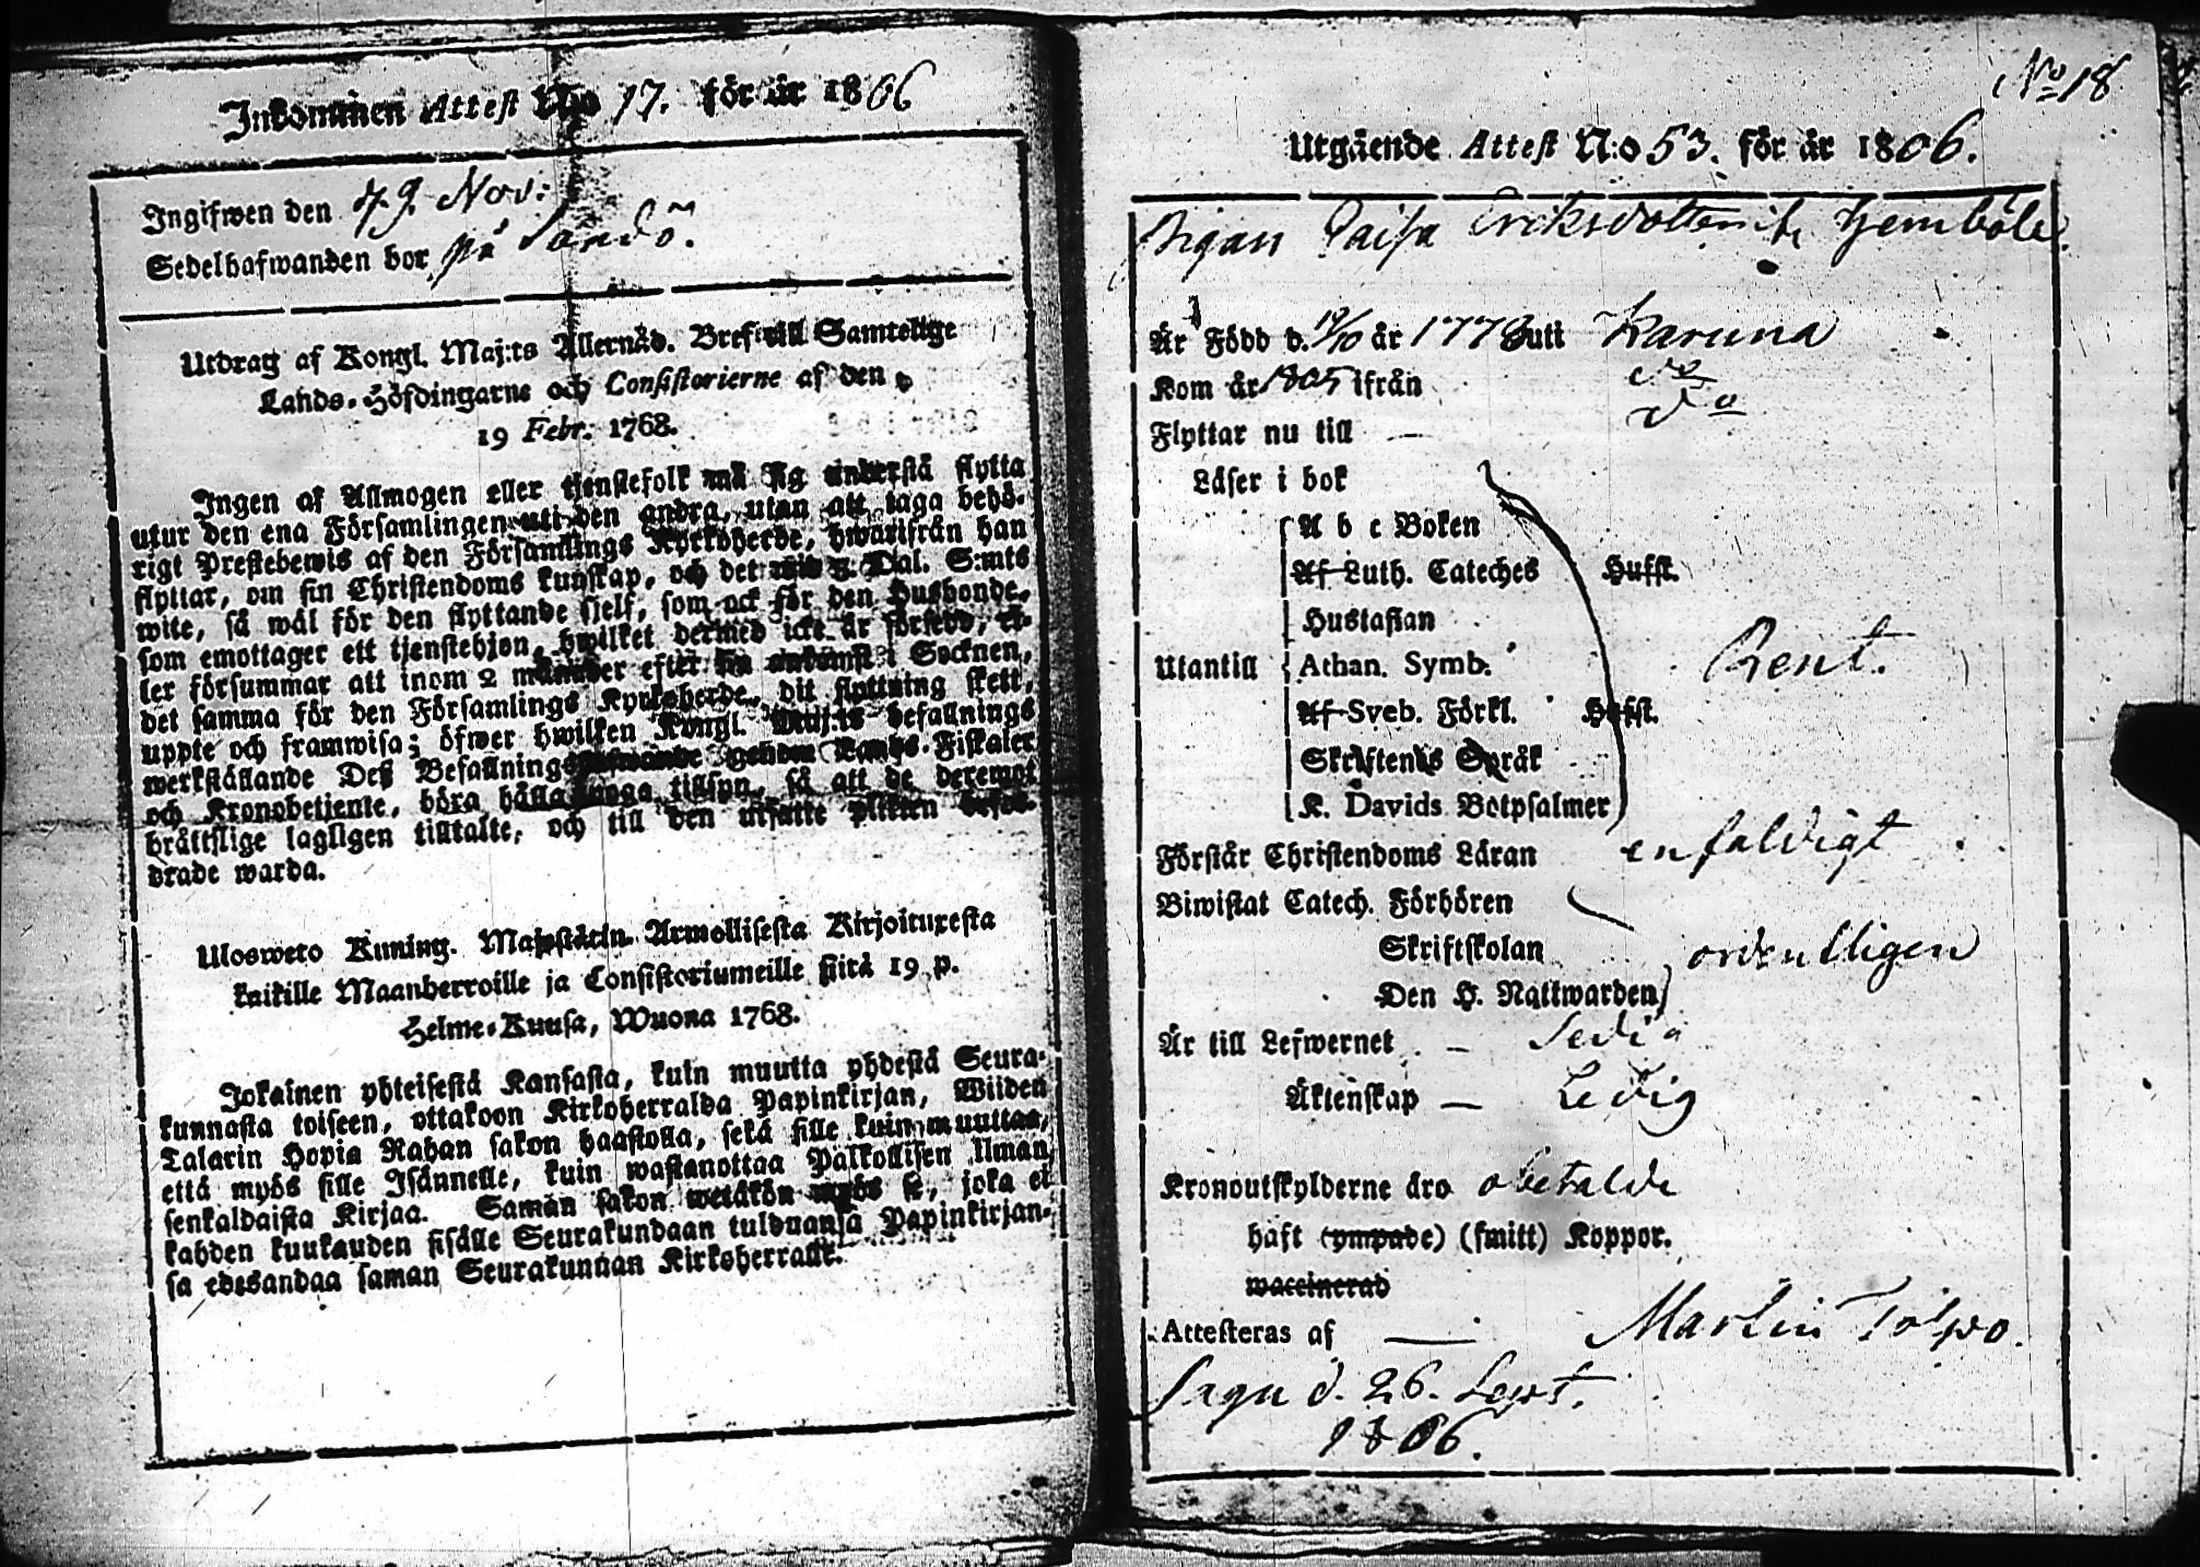 Inkommen Attest No 17. för år 1806
Ingifwen den 9 Nov:
Sedelhafwanden bor på Sandö.
Utdrag af Kongl. Maj:ts Allernåd. Bref till Samtelige
Lands-Höfdingarne och Consistorierne af den
19 Febr. 1768.
Ingen af Allmogen eller tjenstefolk må sig understå flytta
utur den ena Församlingen uti den andra, utan att taga behö-
rigt Prestebewis af den Församlings Kyrkoherde, hwarifrån han
flyttar, om sin Christendoms kunskap, och det wid 5. Dal. S:mts
wite, så wäl för den flyttande sjelf, som ock för den Husbonde,
som emottager ett tjenstehjon, hwilket dermed icke är försedd, el-
ler försummar att inom 2 månader efter sin ankomst i Socknen,
det samma för den Församlings Kyrkoherde, dit flyttning skett,
uppte och framwisa; öfwer hwilken Kongl. Maj:ts befallnings
werkställande Deß Befallningshafwande genom Lands-Fiskaler
och Kronobetjente, böra hålla noga tillsyn, så att de deremot
bråttslige lagligen tilltalte, och till den utsatte plikten befor-
drade warda.
Ulosweto Kuning. Majestätin Armollisesta Kirjoituxesta
kaikille Maanherroille ja Consistoriumeille siitä 19 p.
Helme-Kuusa, Wuona 1768.
Jokainen yhteisestä Kansasta, kuin muutta yhdestä Seura-
kunnasta toiseen, ottakoon Kirkoherralda Papinkirjan, Wiiden
Talarin Hopia Rahan sakon haastolla, sekä sille kuin muuttaa,
että myös sille Isännelle, kuin wastanottaa Palkollisen ilman
senkaldaista Kirjaa. Saman sakon wetäkön myös se, joka ei
kahden kuukauden sisälle Seurakundaan tulduansa Papinkirjan-
sa edesandaa saman Seurakunnan Kirkoherralle.
No 18
Utgående Attest N:o 53. för år 1806.
Pigan Caisa Eriksdotter Hemböle
Är Född d. 19/10 år 1778 uti Karuna
Kom år 1805 ifrån do
Flyttar nu till — do
Läser i bok
A b c Boken
Af Luth. Cateches Hufst.
Hustaflan
Utantill Athan. Symb. Rent.
Af Sveb. Förkl. Hufst.
Skriftenes Språk
K. Davids Botpsalmer
Förstår Christendoms Läran enfaldigt
Biwistat Catech. Förhören
Skriftskolan ordentligen
Den H. Nattwarden
Är till Lefwernet — Sedig
Äktenskap — Ledig
Kronoutskylderne äro obetalde
haft (ympade) (smitt) Koppor.
waccinerad
Attesteras af — Martin Tolpo.
Sagu d. 26. Sept.
1806.